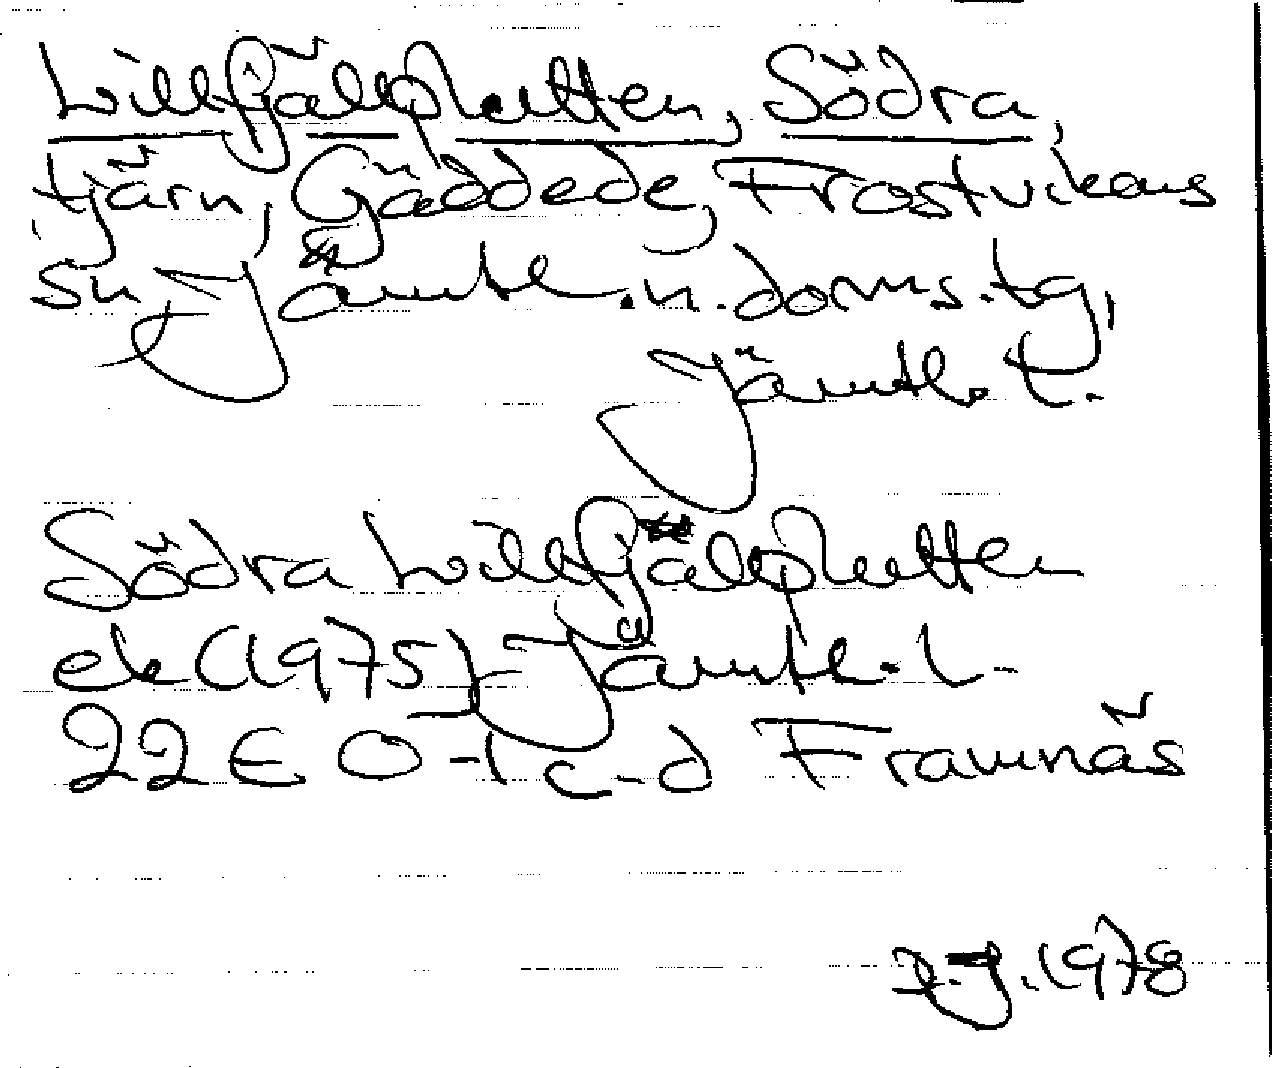 Lillfjällputten, Södra,
tjärn, Gäddede, Frostvikens
sn, Jämtl.n.doms.tg,
Jämtl. l.
Södra Lillfjällputten
ek (1975) Jämtl. l.
22 E 0-1 c-d Framnäs
1978